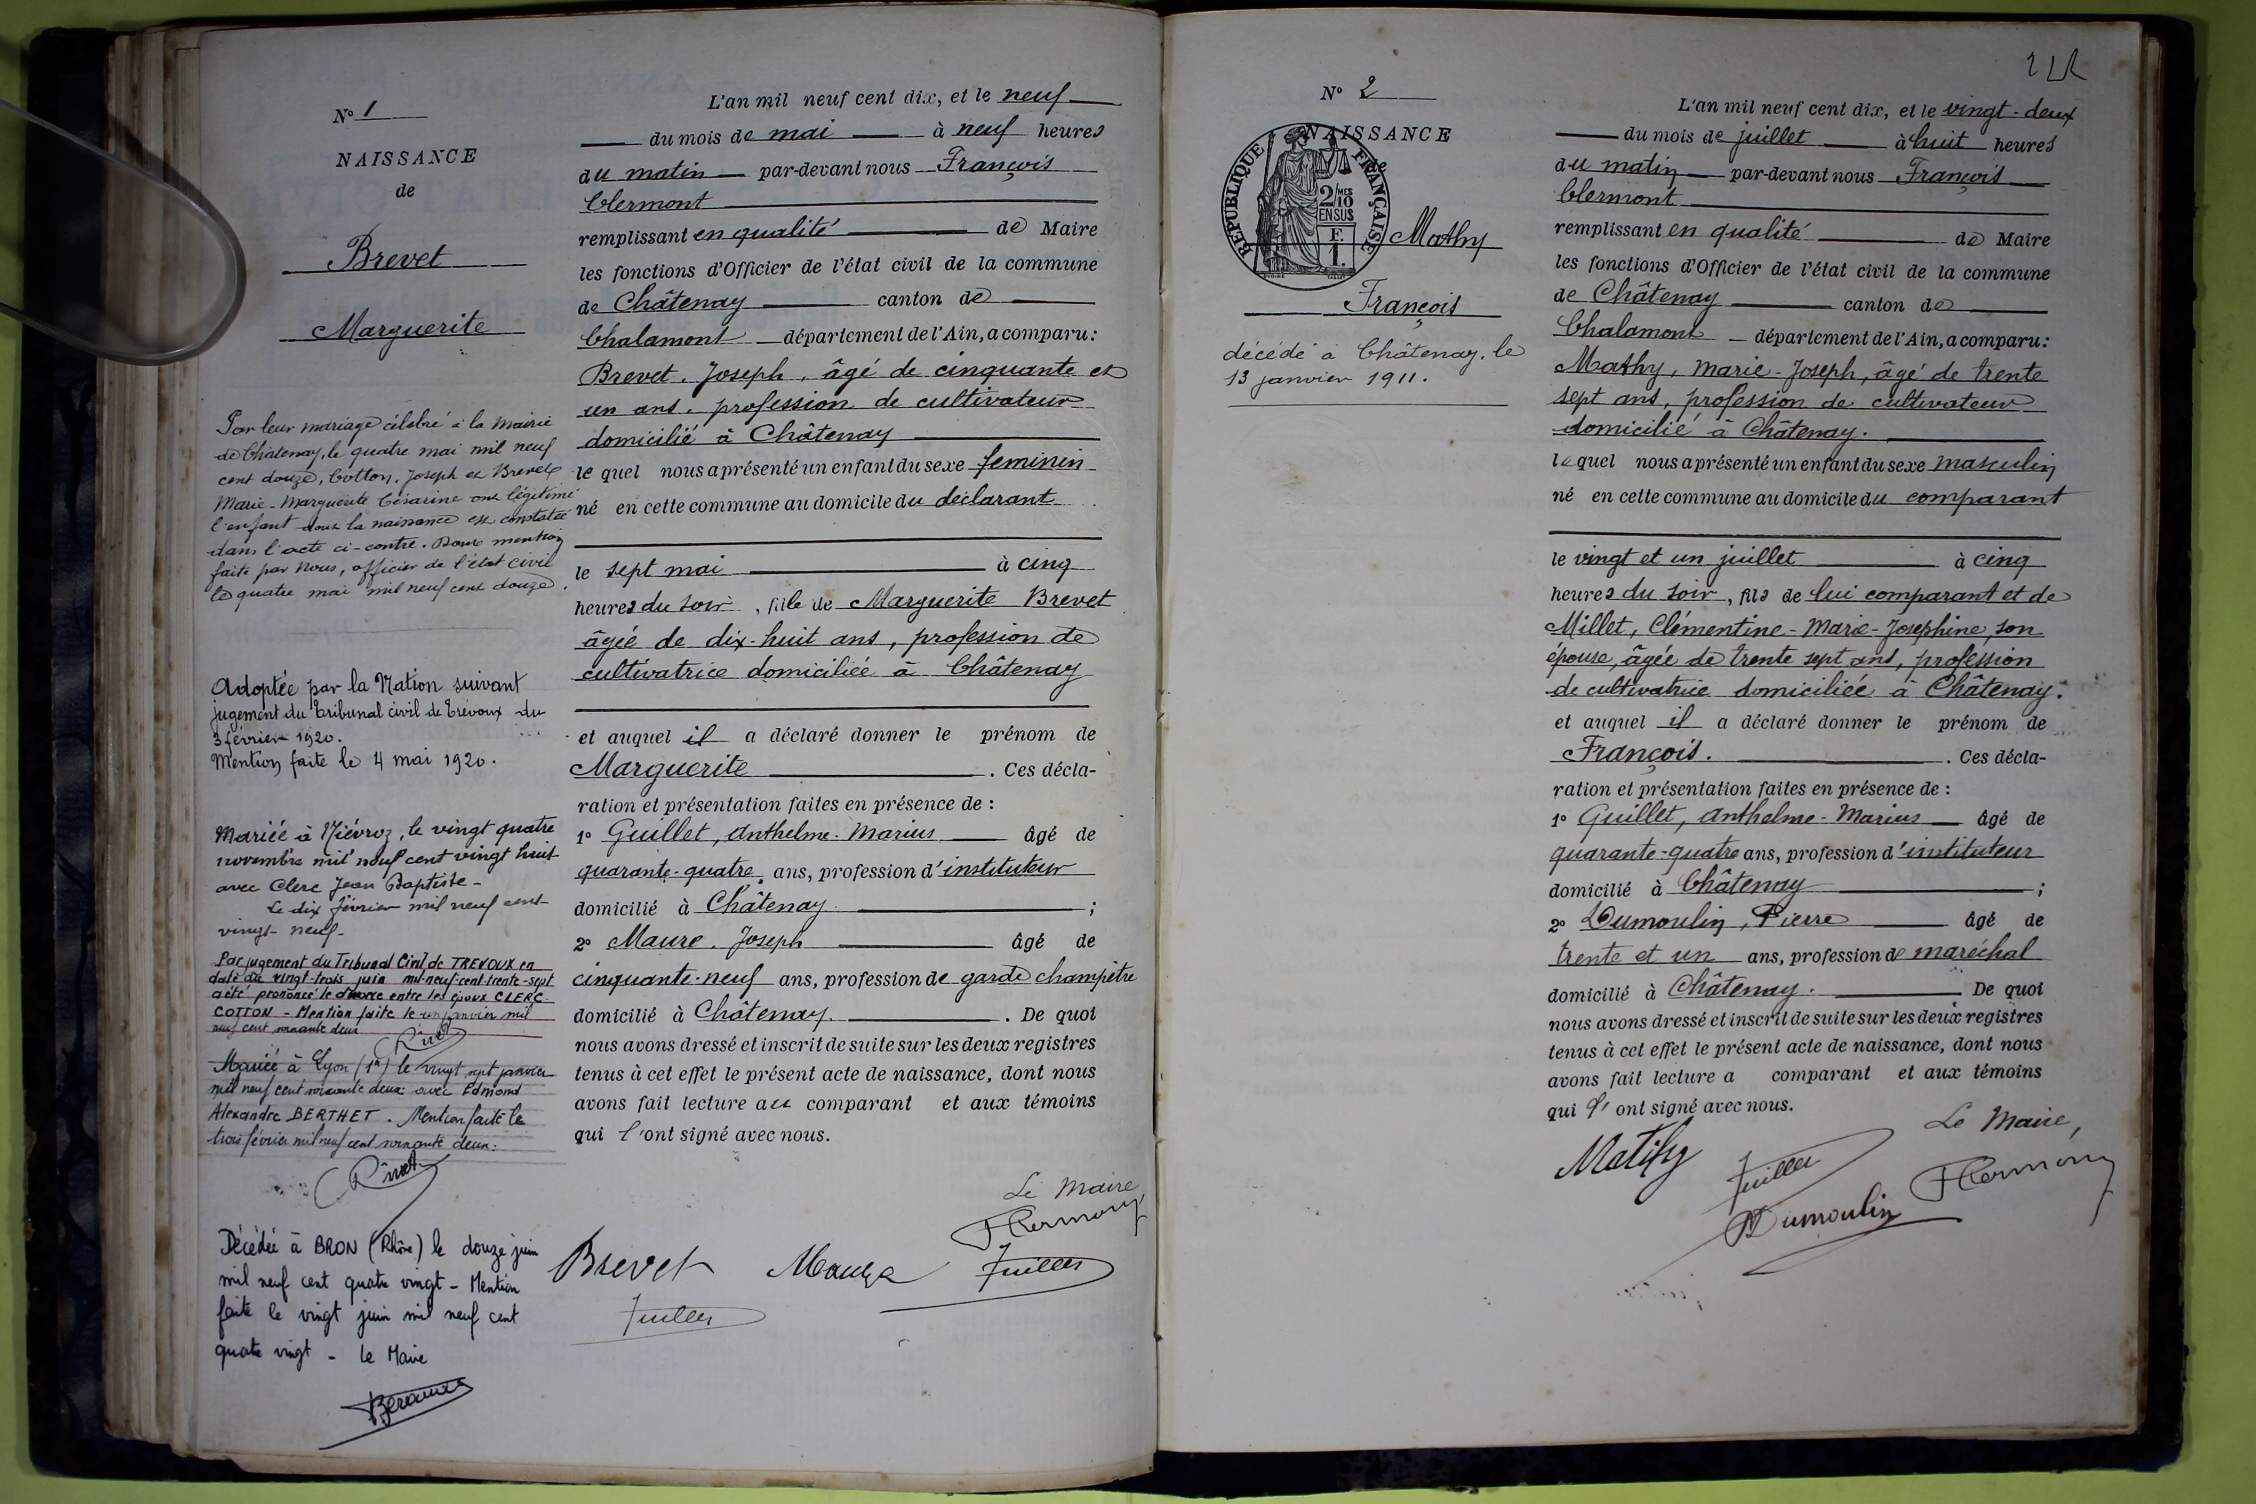 N° 1
NAISSANCE
de
Brevet
Marguerite
Par leur mariage célébré à la Mairie
de Châtenay, le quatre mai mil neuf
cent douze, Cotton, Joseph et Brevet
Marie-Marguerite Césarine ont légitimé
l'enfant dont la naissance est constatée
dans l'acte ci-contre. Dont mention
faite par Nous, officier de l'état civil
le quatre mai mil neuf cent douze.
Adoptée par la Nation suivant
jugement du tribunal civil de Trévoux du
3 février 1920.
Mention faite le 4 mai 1920.
Mariée à Niévroz, le vingt quatre
novembre mil neuf cent vingt huit
avec Clerc Jean Baptiste -
Le dix février mil neuf cent
vingt-neuf-
Par jugement du Tribunal Civil de TREVOUX en
date du vingt-trois juin mil-neuf-cent-trente-sept
a été prononcé le divorce entre les époux CLERC-
COTTON - Mention faite le janvier mil
neuf cent soixante deux
Mariée à Lyon le vingt sept janvier
mil neuf cent soixante deux avec Edmond
Alexandre BERTHET. Mention faite le
trois février mil neuf cent soixante deux.
Décédée à BRON (Rhône) le douze juin
mil neuf cent quatre vingt - Mention
faite le vingt juin mil neuf cent
quatre vingt - Le Maire
L'an mil neuf cent dix, et le neuf
du mois de mai à neuf heures
du matin par-devant nous François
Clermont
remplissant en qualité de Maire
les fonctions d'Officier de l'état civil de la commune
de Châtenay canton de
Chalamont département de l'Ain, a comparu:
Brevet, Joseph, âgé de cinquante et
un ans, profession de cultivateur
domicilié à Châtenay
lequel nous a présenté un enfant du sexe feminin
né en cette commune au domicile du déclarant
le sept mai à cinq
heures du soir, fille de Marguerite Brevet
âgée de dix-huit ans, profession de
cultivatrice domiciliée à Châtenay
et auquel il a déclaré donner le prénom de
Marguerite. Ces décla-
ration et présentation faites en présence de :
1° Guillet, Anthelme-Marius âgé de
quarante-quatre ans, profession d'instituteur
domicilié à Châtenay ;
2° Maure, Joseph âgé de
cinquante-neuf ans, profession de garde champêtre
domicilié à Châtenay. De quoi
nous avons dressé et inscrit de suite sur les deux registres
tenus à cet effet le présent acte de naissance, dont nous
avons fait lecture au comparant et aux témoins
qui l'ont signé avec nous.
Le Maire
FClermont
Brevet
N° 2
NAISSANCE
RÉPUBLIQUE FRANÇAISE
2/10 MES
EN SUS
F.
1.
Mathy
François
décédé à Châtenay, le
13 janvier 1911.
L'an mil neuf cent dix, et le vingt-deux
du mois de juillet à huit heures
du matin par-devant nous François
Clermont
remplissant en qualité de Maire
les fonctions d'Officier de l'état civil de la commune
de Châtenay canton de
Chalamont département de l'Ain, a comparu:
Mathy, Marie-Joseph, âgé de trente
sept ans, profession de cultivateur
domicilié à Châtenay.
lequel nous a présenté un enfant du sexe masculin
né en cette commune au domicile du comparant
le vingt et un juillet à cinq
heures du soir, fils de lui comparant et de
Millet, Clémentine-Marie-Josephine, son
épouse, âgée de trente sept ans, profession
de cultivatrice domiciliée à Châtenay.
et auquel il a déclaré donner le prénom de
François. Ces décla-
ration et présentation faites en présence de :
1° Guillet, Anthelme-Marius âgé de
quarante-quatre ans, profession d'instituteur
domicilié à Châtenay ;
2° Dumoulin, Pierre âgé de
trente et un ans, profession de maréchal
domicilié à Châtenay. De quoi
nous avons dressé et inscrit de suite sur les deux registres
tenus à cet effet le présent acte de naissance, dont nous
avons fait lecture a comparant et aux témoins
qui l'ont signé avec nous.
Le Maire,
Mathy
FClermont
Dumoulin